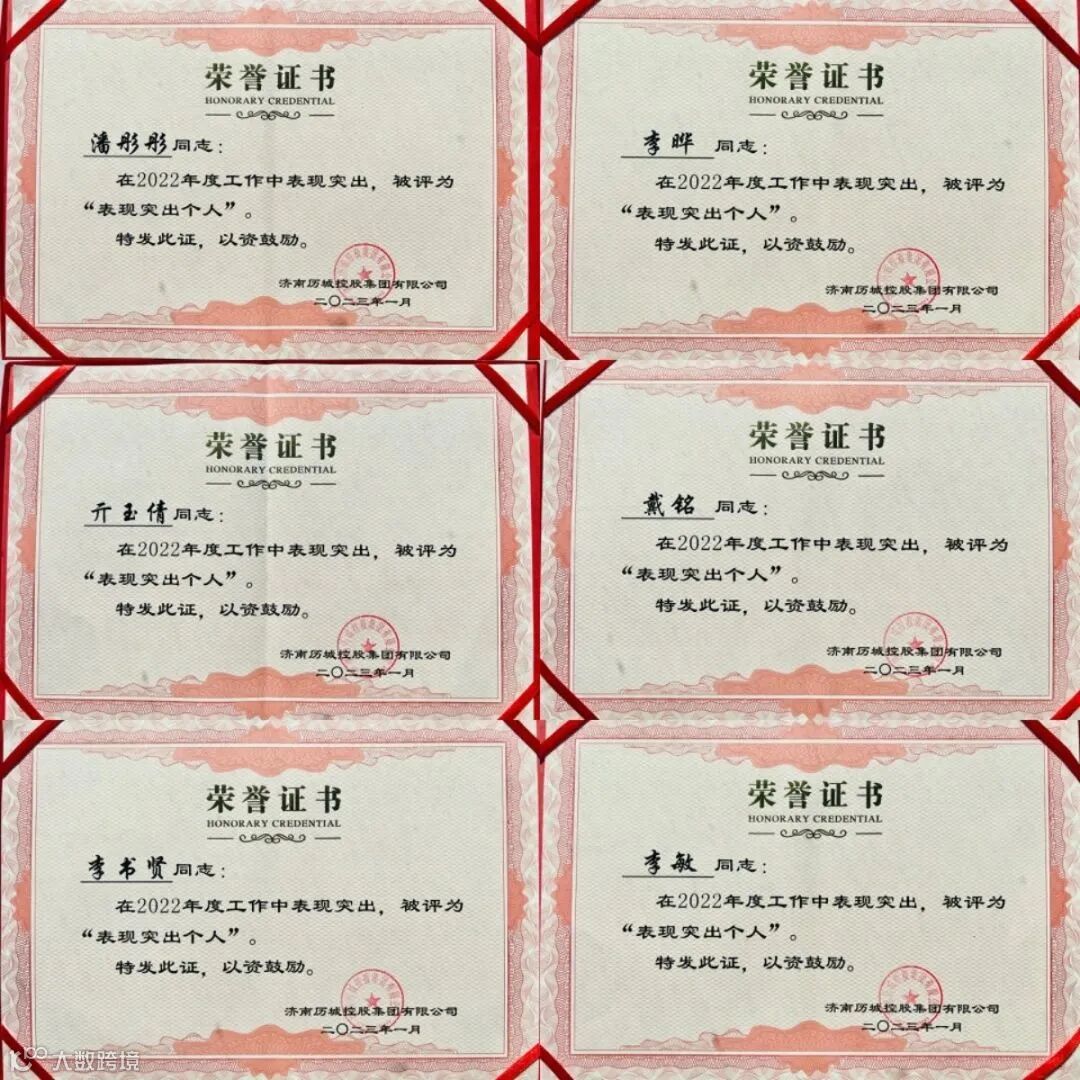 荣誉证书
HONORARY CREDENTIAL
潘彤彤同志：
在2022年度工作中表现突出，被评为
“表现突出个人”。
特发此证，以资鼓励。
济南历城控股集团有限公司
二〇二三年一月
荣誉证书
HONORARY CREDENTIAL
李晔 同志：
在2022年度工作中表现突出，被评为
“表现突出个人”。
特发此证，以资鼓励。
济南历城控股集团有限公司
二〇二三年一月
荣誉证书
HONORARY CREDENTIAL
亓玉倩同志：
在2022年度工作中表现突出，被评为
“表现突出个人”。
特发此证，以资鼓励。
济南历城控股集团有限公司
二〇二三年一月
荣誉证书
HONORARY CREDENTIAL
戴铭 同志：
在2022年度工作中表现突出，被评为
“表现突出个人”。
特发此证，以资鼓励。
济南历城控股集团有限公司
二〇二三年一月
荣誉证书
HONORARY CREDENTIAL
李书贤同志：
在2022年度工作中表现突出，被评为
“表现突出个人”。
特发此证，以资鼓励。
济南历城控股集团有限公司
二〇二三年一月
荣誉证书
HONORARY CREDENTIAL
李敏 同志：
在2022年度工作中表现突出，被评为
“表现突出个人”。
特发此证，以资鼓励。
济南历城控股集团有限公司
二〇二三年一月
大数跨境